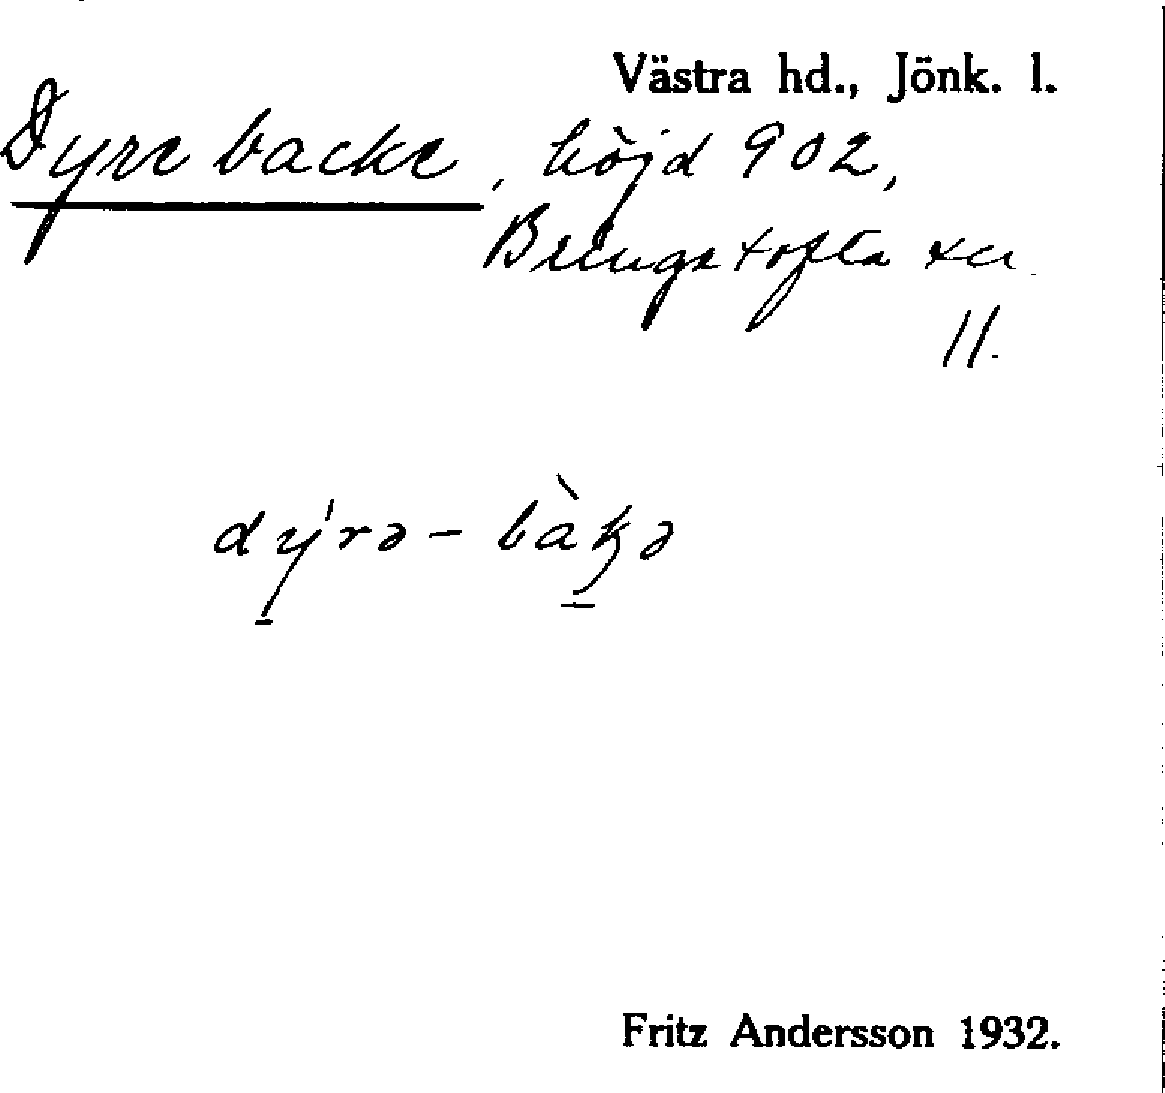 Västra hd., Jönk. l.
Dyre backe, höjd 902,
Bringetofta sn
11.
dy'rə - bàkə
Fritz Andersson 1932.